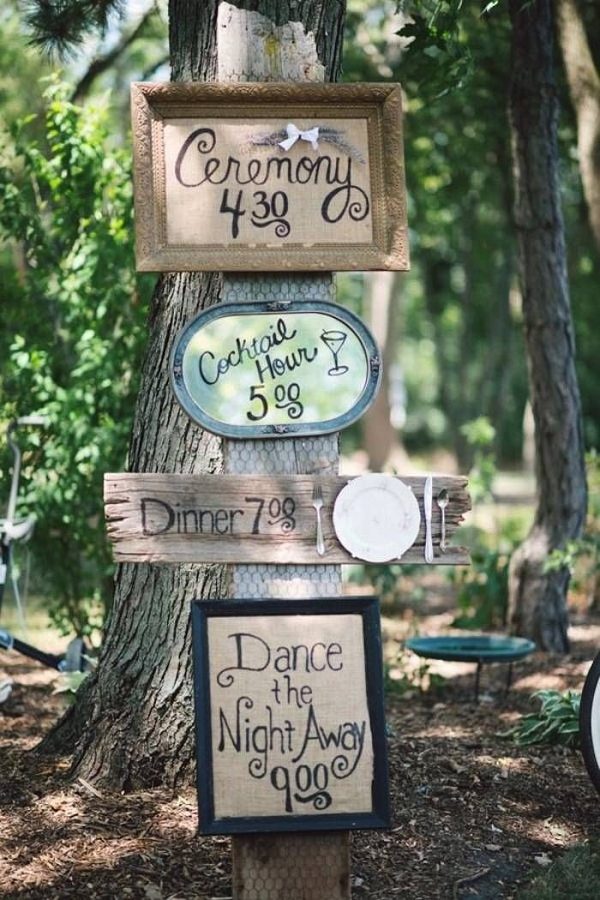 Ceremony
4 30
Cocktail
Hour
5 00
Dinner 7 00
Dance
the
Night Away
9 00